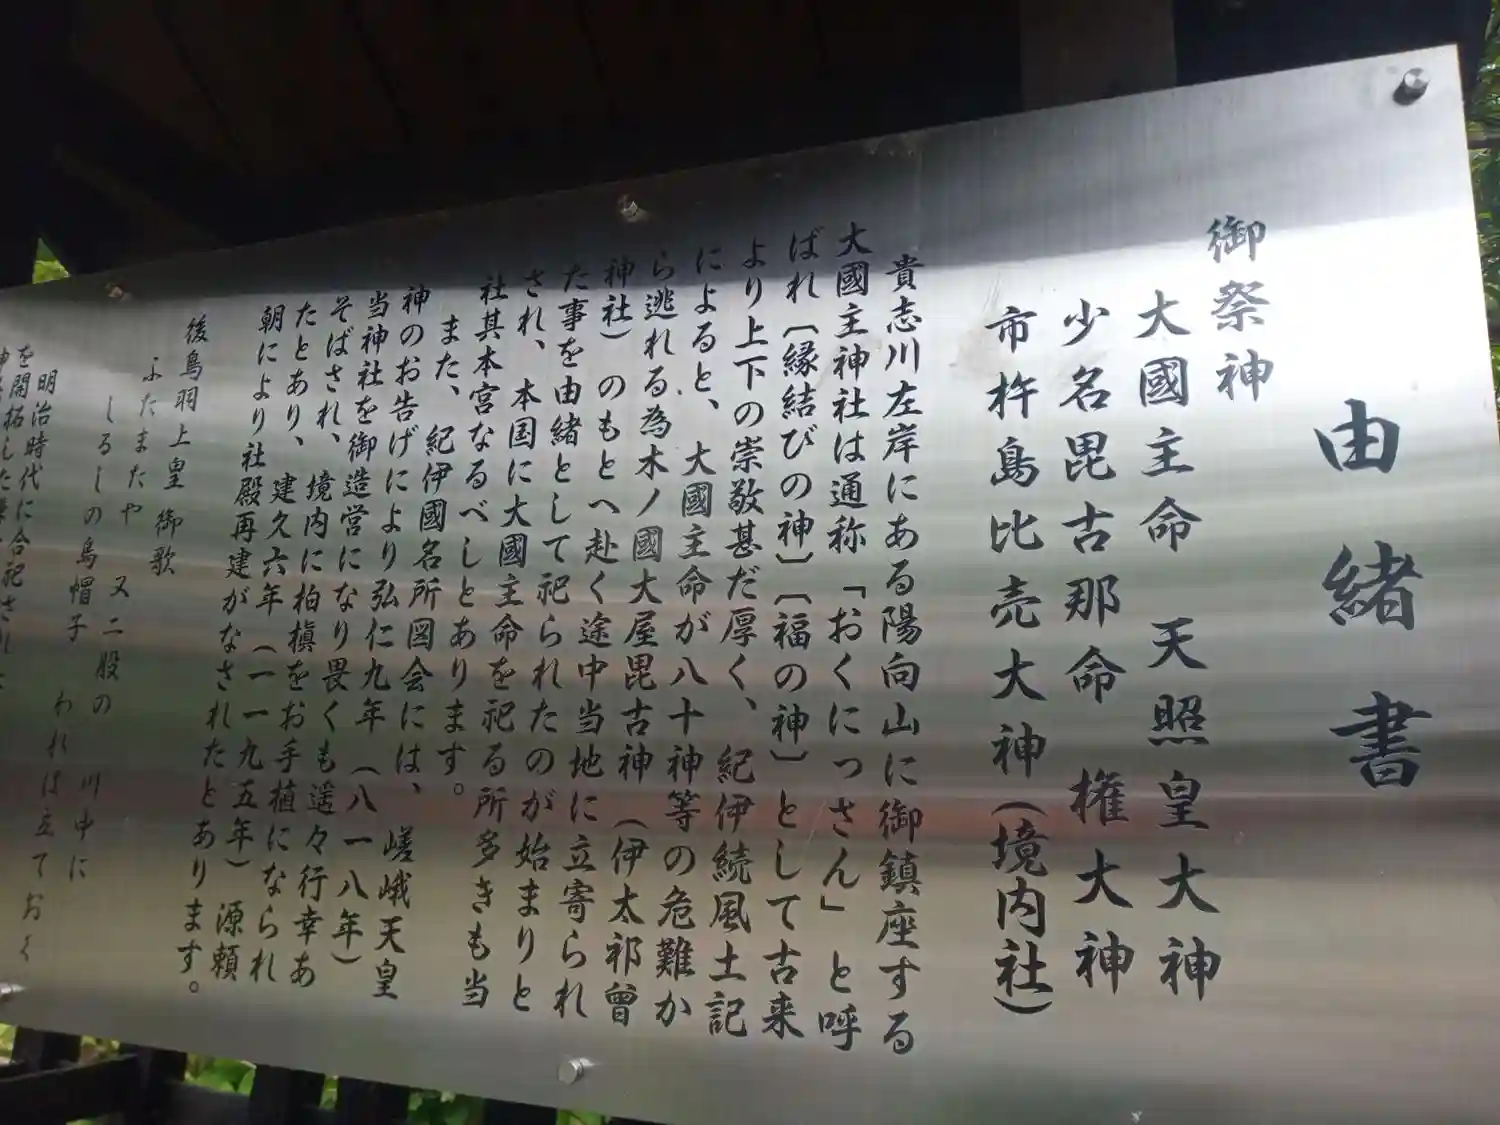 由緒書
御祭神
大國主命 天照皇大神
少名毘古那命 権大神
市杵島比売大神(境内社)
貴志川左岸にある陽向山に御鎮座する
大國主神社は通称「おくにっさん」と呼
ばれ〔縁結びの神〕〔福の神〕として古来
より上下の崇敬甚だ厚く、紀伊続風土記
によると、大國主命が八十神等の危難か
ら逃れる為木ノ國大屋毘古神(伊太祁曽
神社)のもとへ赴く途中当地に立寄られ
た事を由緒として祀られたのが始まりと
され、本国に大國主命を祀る所多きも当
社其本宮なるべしとあります。
また、紀伊國名所図会には、嵯峨天皇
神のお告げにより弘仁九年(八一八年)
当神社を御造営になり畏くも遥々行幸あ
そばされ、境内に柏槇をお手植になられ
たとあり、建久六年(一一九五年)源頼
朝により社殿再建がなされたとあります。
後鳥羽上皇御歌
ふたまたや 又二股の 川中に
しるしの烏帽子 われは立ておく
明治時代に合祀され
を開拓した